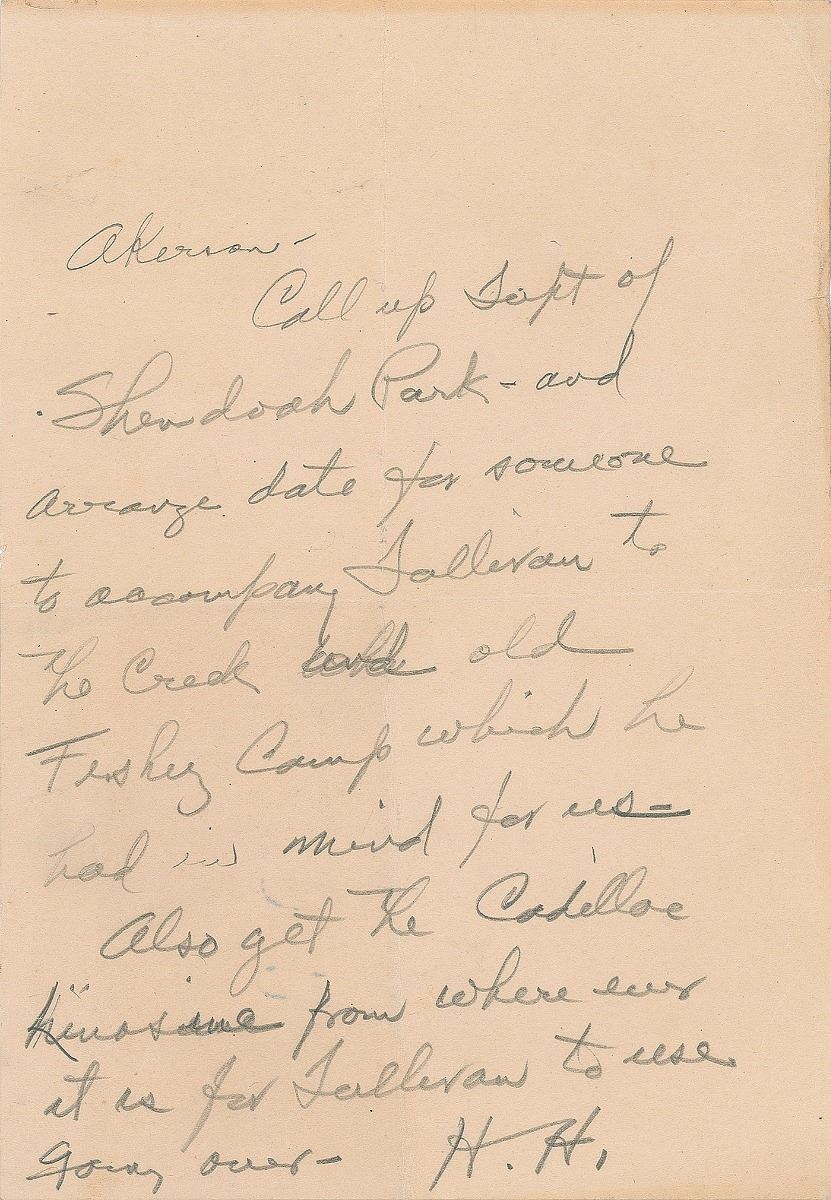 Akerson-
Call up Supt of
Shendoah Park - and
arrange date for someone
to accompany Sullivan to
the Creek old
Fishing Camp which he
had in mind for us-
Also get the Cadillac
from where ever
it is for Sullivan to use
Going over- H. H.